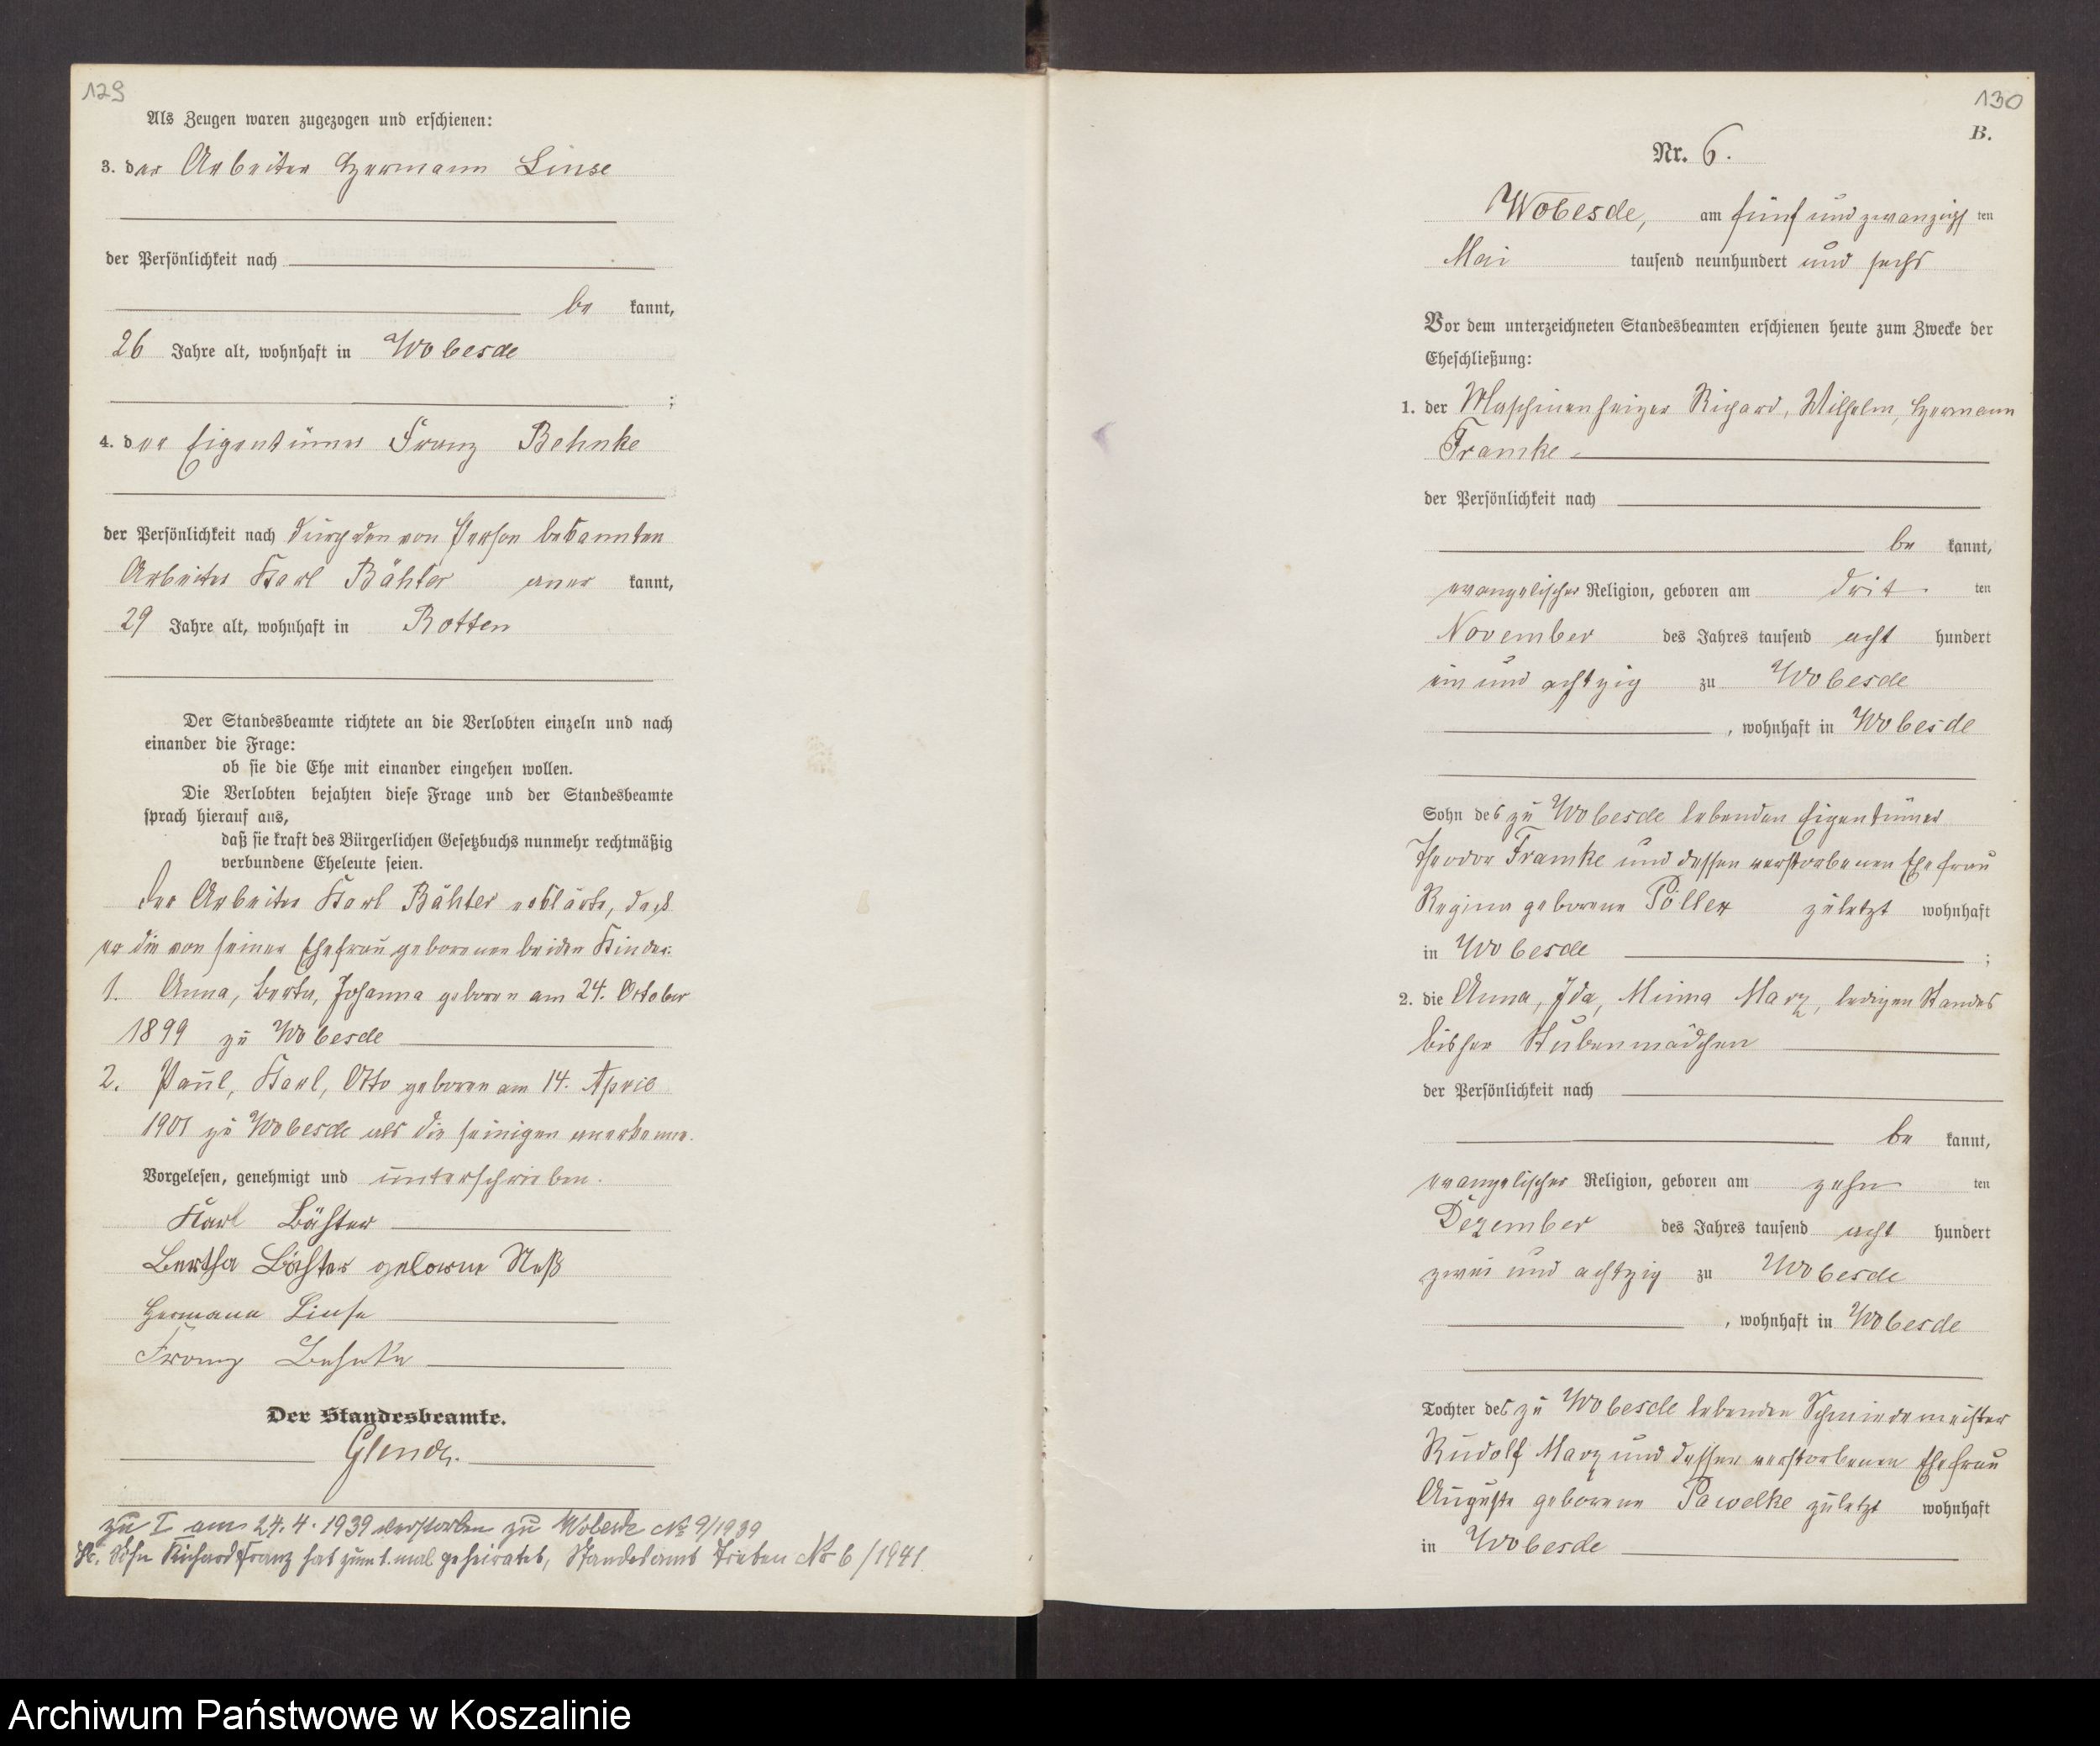 129
Als Zeugen waren zugezogen und erschienen:
3. der Arbeiter Hermann Linse
der Persönlichkeit nach
be kannt,
26 Jahre alt, wohnhaft in Wobesde
;
4. der Eigentümer Franz Behnke
der Persönlichkeit nach durch den von Person bekannten
Arbeiter Karl Bähter aner kannt,
29 Jahre alt, wohnhaft in Rotten
Der Standesbeamte richtete an die Verlobten einzeln und nach
einander die Frage:
ob sie die Ehe mit einander eingehen wollen.
Die Verlobten bejahten diese Frage und der Standesbeamte
sprach hierauf aus,
daß sie kraft des Bürgerlichen Gesetzbuchs nunmehr rechtmäßig
verbundene Eheleute seien.
Der Arbeiter Karl Bähter erklärte, daß
er die von seiner Ehefrau geborenen beiden Kinder:
1. Anna, Berta, Johanna geboren am 24. Oktober
1899 zu Wobesde
2. Paul, Karl, Otto geboren am 14. April
1901 zu Wobesde als die seinigen anerkenne.
Vorgelesen, genehmigt und unterschrieben.
Karl Bähter
Bertha Bähter geborne Neß
Hermann Linse
Franz Behnke
Der Standesbeamte.
Glende.
zu I am 24.4.1939 verstorben zu Wobesde No 9/1939
Sohn Richard Franz hat zum 1. mal geheiratet, Standesamt Trieben No 6/1941.
130
B.
Nr. 6.
Wobesde, am fünf und zwanzigsten
Mai tausend neunhundert und sechs
Vor dem unterzeichneten Standesbeamten erschienen heute zum Zwecke der
Eheschließung:
1. der Maschinenheizer Richard, Wilhelm, Hermann
Framke
der Persönlichkeit nach
be kannt,
evangelischer Religion, geboren am drit ten
November des Jahres tausend acht hundert
ein und achtzig zu Wobesde
, wohnhaft in Wobesde
Sohn des zu Wobesde lebenden Eigentümer
Theodor Framke und dessen verstorbenen Ehefrau
Regina geborene Pöller zuletzt wohnhaft
in Wobesde ;
2. die Anna, Ida, Minna Marz, ledigen Standes
bisher Stubenmädchen
der Persönlichkeit nach
be kannt,
evangelischer Religion, geboren am zehn ten
Dezember des Jahres tausend acht hundert
zwei und achtzig zu Wobesde
, wohnhaft in Wobesde
Tochter des zu Wobesde lebenden Schmiedemeister
Rudolf Marz und dessen verstorbenen Ehefrau
Auguste geborene Pawelke zuletzt wohnhaft
in Wobesde
Archiwum Państwowe w Koszalinie